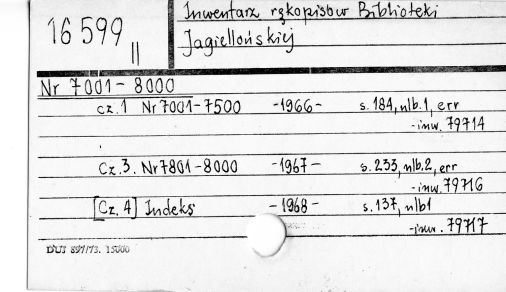 16 599 II
Inwentarz rękopisów Biblioteki
Jagiellońskiej
Nr 7001-8000
cz.1 Nr 7001-7500 -1966- s.184, nlb.1, err
-inw. 79714
Cz.3. Nr 7801-8000 -1967- s.233, nlb.2, err
-inw. 79716
[Cz. 4] Indeks -1968- s.137, nlb1
-inw. 79717
DUJ 897/73. 15000